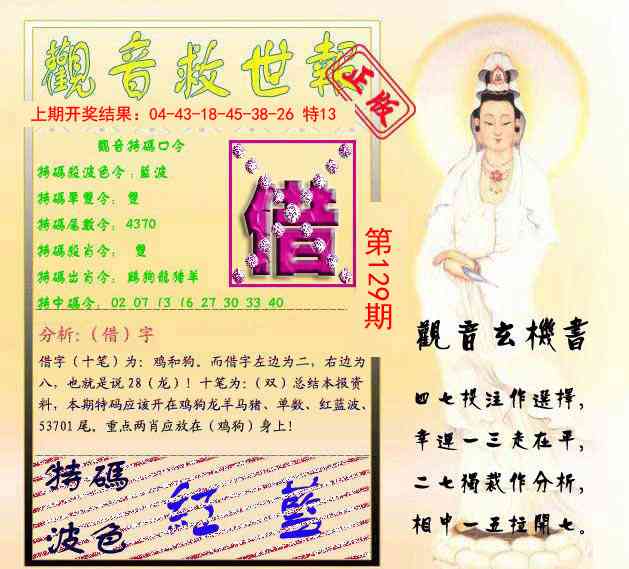 觀音救世報
正版
上期开奖结果：04-43-18-45-38-26 特13
觀音特碼口令
特碼段波色令：藍波
特碼單雙令： 雙
特碼尾數令： 4370
特碼段肖令： 雙
特碼出肖令： 鷄狗龍猪羊
特中碼令： 02 07 13 16 27 30 33 40
借
第129期
分析：（借）字
借字（十笔）为：鸡和狗。而借字左边为二，右边为
八，也就是说28（龙）！十笔为：（双）总结本报资
料，本期特码应该开在鸡狗龙羊马猪、单数、红蓝波、
53701尾。重点两肖应放在（鸡狗）身上！
特碼
波色
紅 藍
觀音玄機書
四七投注作選擇，
幸運一三走在平，
二七獨裁作分析，
相中一五拄開七。